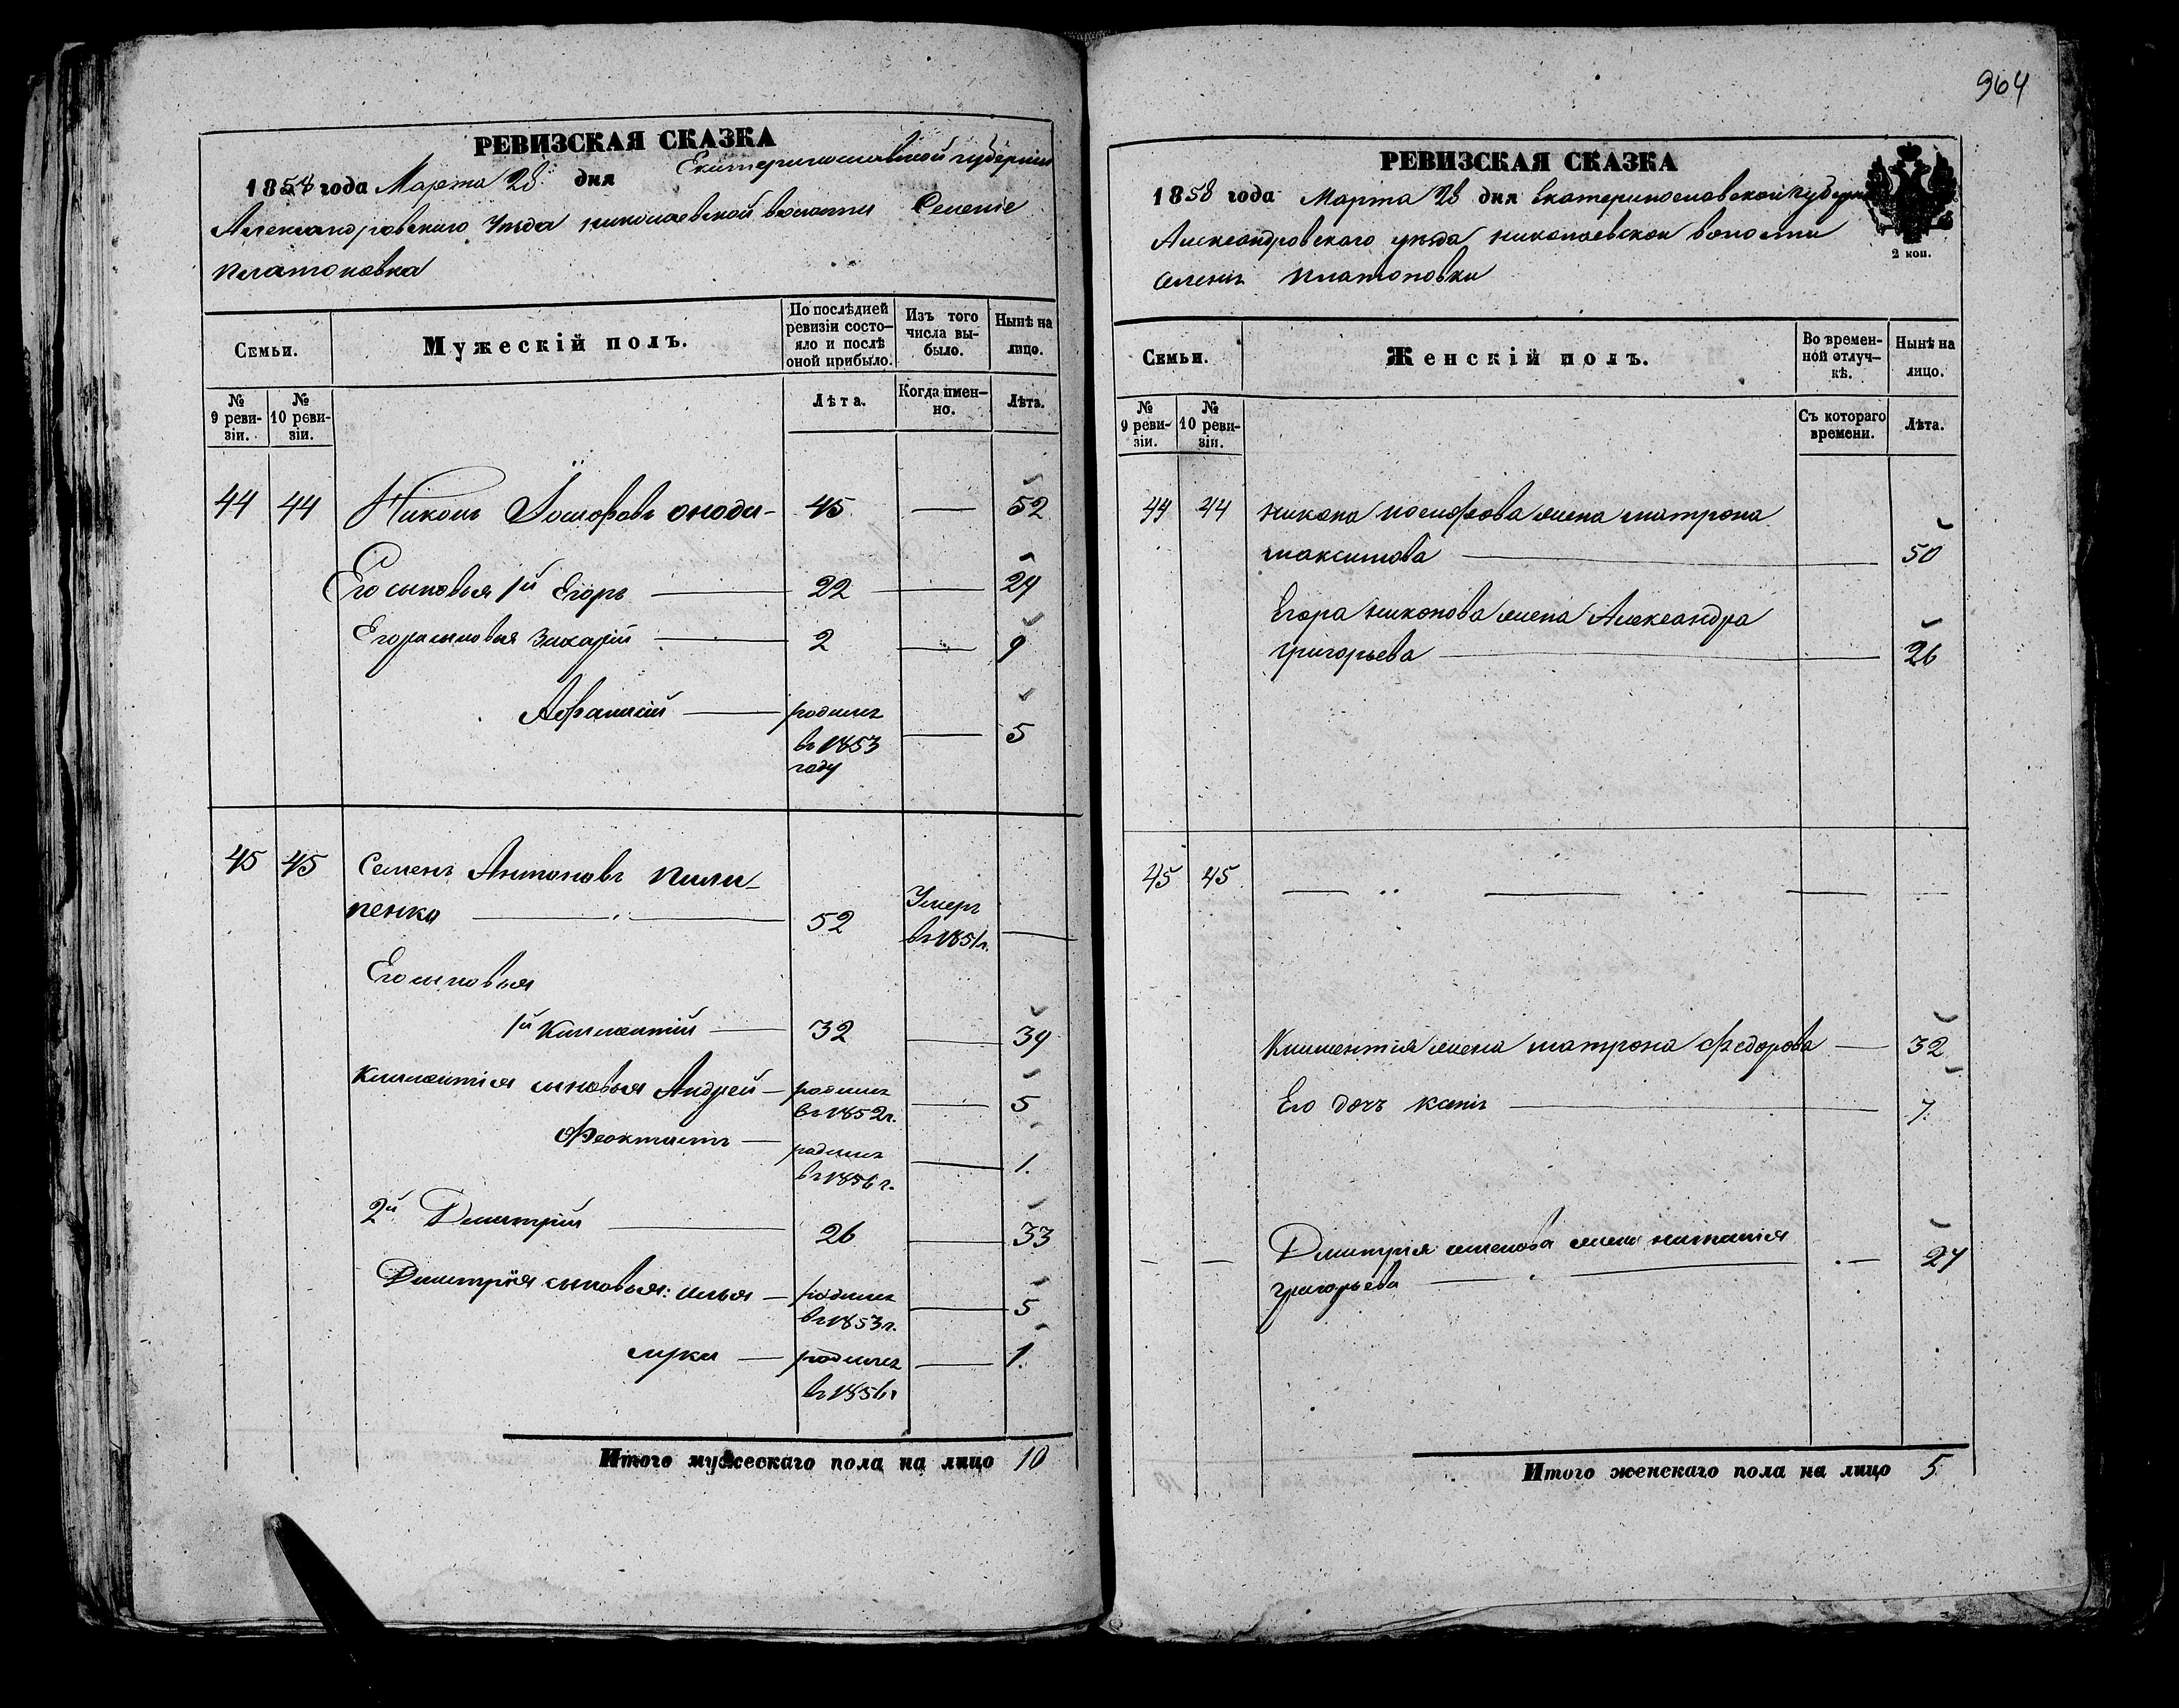 964
РЕВИЗСКАЯ СКАЗКА
1858 года Марта 28 дня Екатеринославской губернии
Александровского Уезда николаевской волости Селение
платоновка
Семьи.
Мужескій полъ.
По послѣдней ревизіи состояло и послѣ оной прибыло.
Изъ того числа выбыло.
Нынѣ на лицо.
№ 9 ревизіи.
№ 10 ревизіи.
Лѣта.
Когда имен-но.
Лѣта.
44 44 Никонъ Іосифовъ 45 — 52
Его сыновья 1й Егоръ — 22 — 29
Егора сыновья Захарій — 2 — 9
Афанасій — родился
въ 1853 — 5
году
45 45 Семенъ Антоновъ Пили-
пенко — 52 Умеръ
въ 1851 г. —
Его сыновья
1й Климентій — 32 — 39
Климентія сыновья Андрей — родился
въ 1852 г. — 5
Феоктистъ — родился
въ 1856 г. — 1.
2й Дмитрій — 26 — 33
Дмитрія сыновья: илья — родился
въ 1853 г. — 5
марка — родился — 1.
въ 1856 г
Итого мужескаго пола на лицо 10
РЕВИЗСКАЯ СКАЗКА
1858 года Марта 28 дня екатеринославской губернии
Александровского уезда николаевской волости
селения платоновки
2 коп.
Семьи.
Женскій полъ.
Во времен-ной отлуч-кѣ.
Нынѣ на лицо.
№ 9 реви-зіи.
№ 10 реви-зіи.
Съ котораго времени.
Лѣта.
44 44 никона иосифова жена матрона
максимова — 50
Егора никонова жена Александра
григорьева — 26
45 45 — — —
Климентия жена матрона федорова — 32
Его дочь — 7.
— — Дмитрия семенова жена наталия — 27
григорьева —
Итого женскаго пола на лицо 5